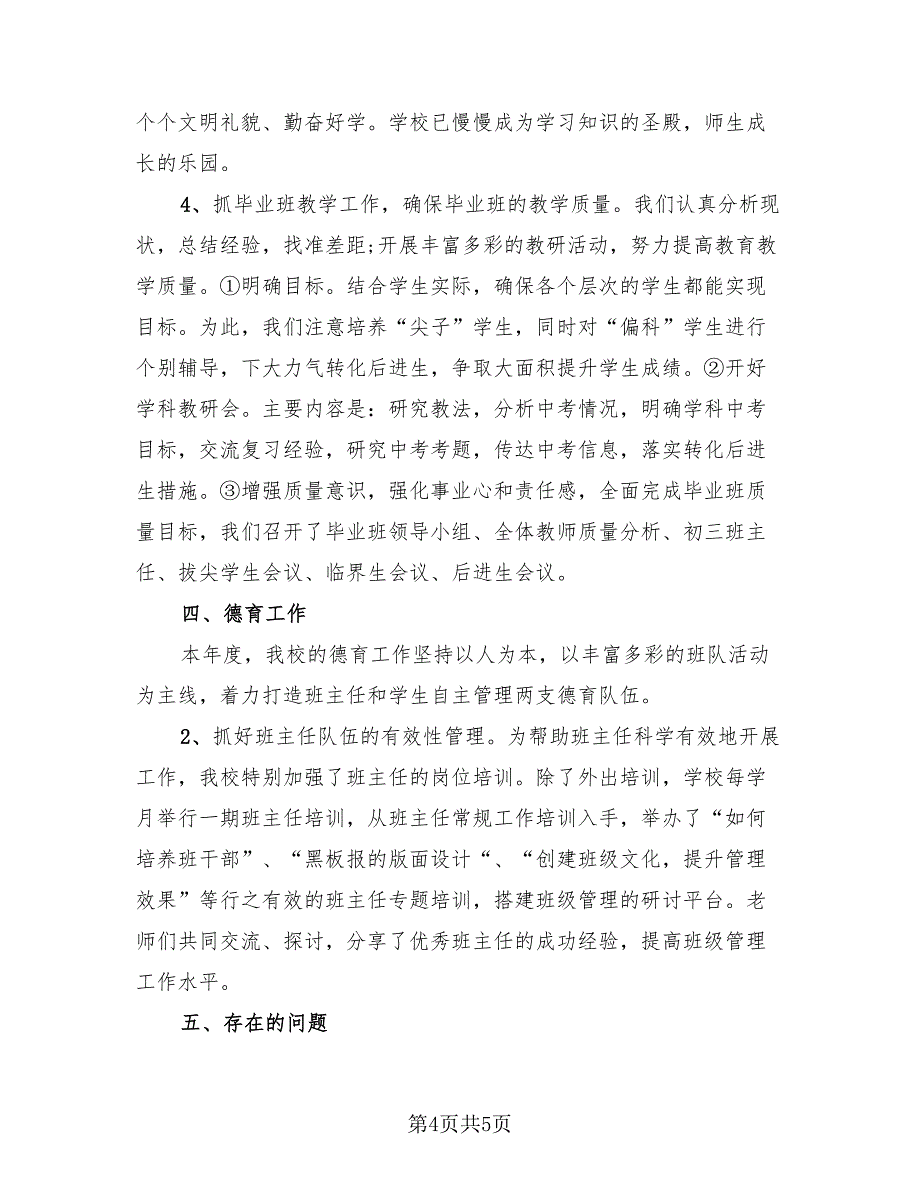 个个文明礼貌、勤奋好学。学校已慢慢成为学习知识的圣殿，师生成
长的乐园。
4、抓毕业班教学工作，确保毕业班的教学质量。我们认真分析现
状，总结经验，找准差距;开展丰富多彩的教研活动，努力提高教育教
学质量。①明确目标。结合学生实际，确保各个层次的学生都能实现
目标。为此，我们注意培养“尖子”学生，同时对“偏科”学生进行
个别辅导，下大力气转化后进生，争取大面积提升学生成绩。②开好
学科教研会。主要内容是：研究教法，分析中考情况，明确学科中考
目标，交流复习经验，研究中考考题，传达中考信息，落实转化后进
生措施。③增强质量意识，强化事业心和责任感，全面完成毕业班质
量目标，我们召开了毕业班领导小组、全体教师质量分析、初三班主
任、拔尖学生会议、临界生会议、后进生会议。
四、德育工作
本年度，我校的德育工作坚持以人为本，以丰富多彩的班队活动
为主线，着力打造班主任和学生自主管理两支德育队伍。
2、抓好班主任队伍的有效性管理。为帮助班主任科学有效地开展
工作，我校特别加强了班主任的岗位培训。除了外出培训，学校每学
月举行一期班主任培训，从班主任常规工作培训入手，举办了“如何
培养班干部”、“黑板报的版面设计“、“创建班级文化，提升管理
效果”等行之有效的班主任专题培训，搭建班级管理的研讨平台。老
师们共同交流、探讨，分享了优秀班主任的成功经验，提高班级管理
工作水平。
五、存在的问题
第4页共5页